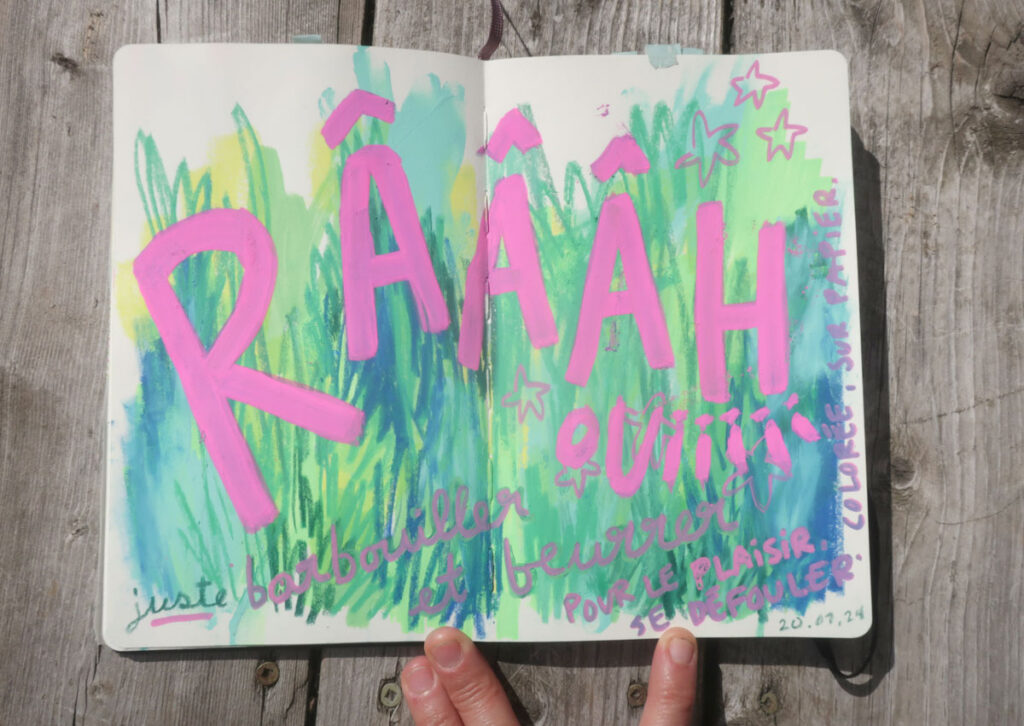 RÂÂÂH
OUiiiii
juste barbouiller
et beurrer
POUR LE PLAiSiR.
SE DÉFOULER.
COLORÉE. SUR PAPIER.
20.07.24